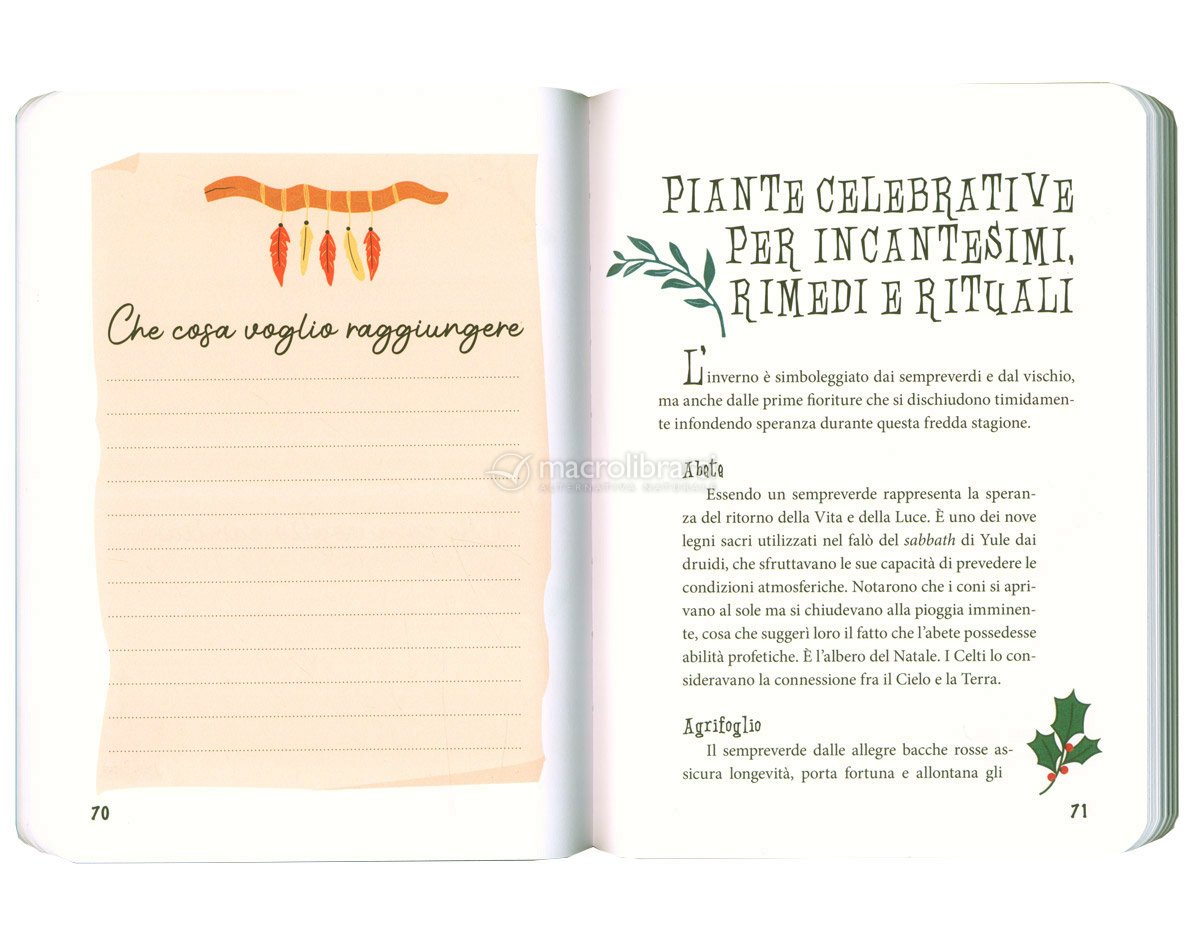 Che cosa voglio raggiungere
70
PIANTE CELEBRATIVE
PER INCANTESIMI,
RIMEDI E RITUALI
L'inverno è simboleggiato dai sempreverdi e dal vischio,
ma anche dalle prime fioriture che si dischiudono timidamen-
te infondendo speranza durante questa fredda stagione.
Abete
Essendo un sempreverde rappresenta la speran-
za del ritorno della Vita e della Luce. È uno dei nove
legni sacri utilizzati nel falò del sabbath di Yule dai
druidi, che sfruttavano le sue capacità di prevedere le
condizioni atmosferiche. Notarono che i coni si apri-
vano al sole ma si chiudevano alla pioggia imminen-
te, cosa che suggerì loro il fatto che l'abete possedesse
abilità profetiche. È l'albero del Natale. I Celti lo con-
sideravano la connessione fra il Cielo e la Terra.
Agrifoglio
Il sempreverde dalle allegre bacche rosse as-
sicura longevità, porta fortuna e allontana gli
71
macrolibrarsi
ALTERNATIVA NATURALE